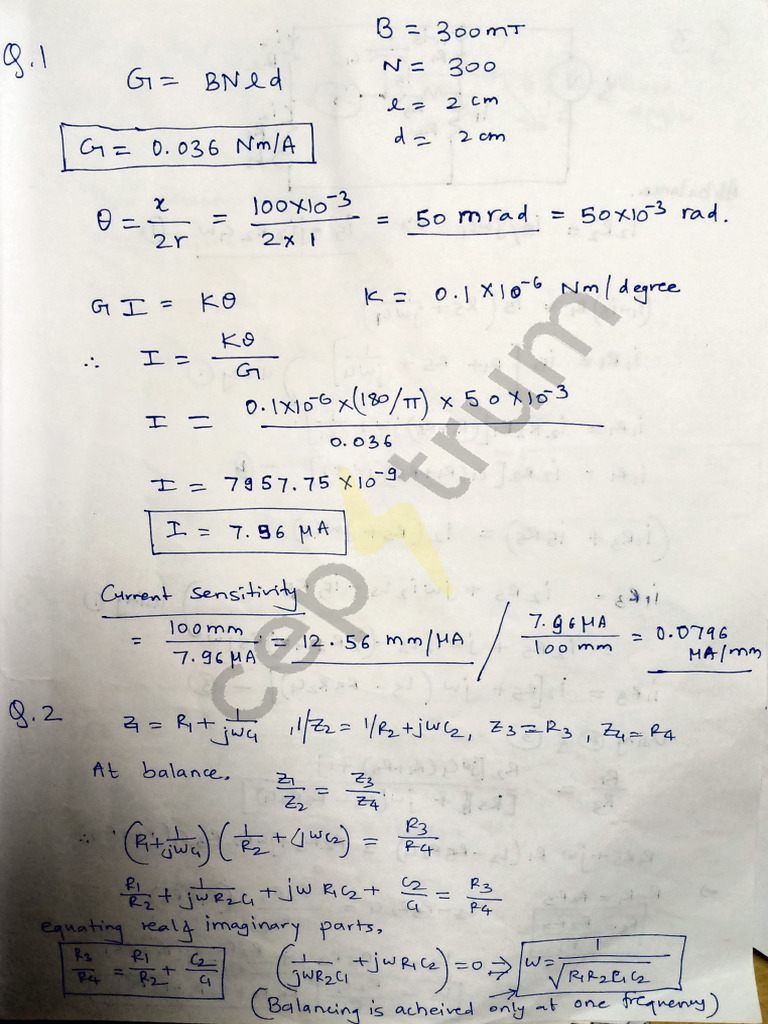 Q.1
B = 300mT
G = BNld
N = 300
l = 2 cm
G = 0.036 Nm/A
d = 2 cm
θ = x/2r = 100×10⁻³/2×1 = 50 mrad = 50×10⁻³ rad.
GI = Kθ K = 0.1×10⁻⁶ Nm/degree
∴ I = Kθ/G
I = 0.1×10⁻⁶×(180/π) × 50×10⁻³/0.036
I = 7957.75×10⁻⁹
I = 7.96 μA
Current sensitivity
= 100mm/7.96μA = 12.56 mm/μA / 7.96μA/100 mm = 0.0796 μA/mm
Q.2 Z₁ = R₁ + 1/jωC₁, 1/Z₂ = 1/R₂+jωC₂, Z₃=R₃, Z₄=R₄
At balance. Z₁/Z₂ = Z₃/Z₄.
∴ (R₁+1/jωC₁)(1/R₂ + jωC₂) = R₃/R₄
R₁/R₂ + 1/jωR₂C₁ + jωR₁C₂ + C₂/C₁ = R₃/R₄
equating real & imaginary parts,
R₃/R₄ = R₁/R₂ + C₂/C₁ (1/jωR₂C₁ + jωR₁C₂) = 0 ⇒ ω = 1/√R₁R₂C₁C₂
(Balancing is acheived only at one frequency)
cep trum